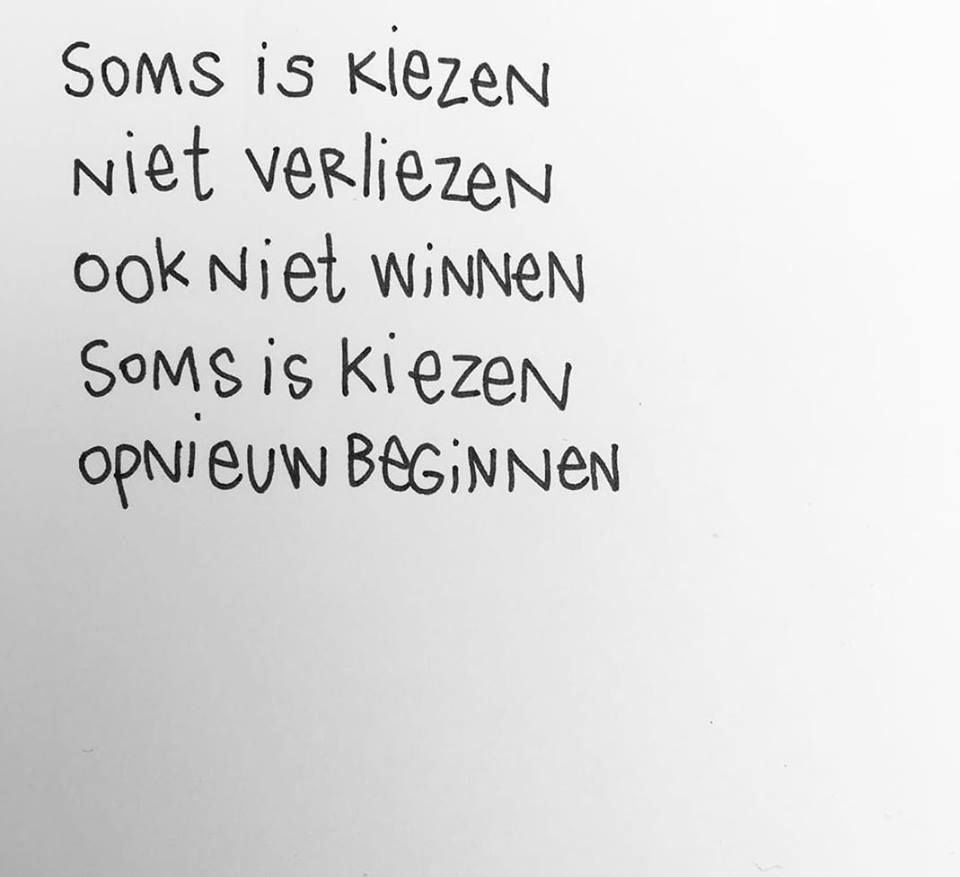 soms is kiezen
niet verliezen
ook niet winnen
soms is kiezen
opnieuw beginnen